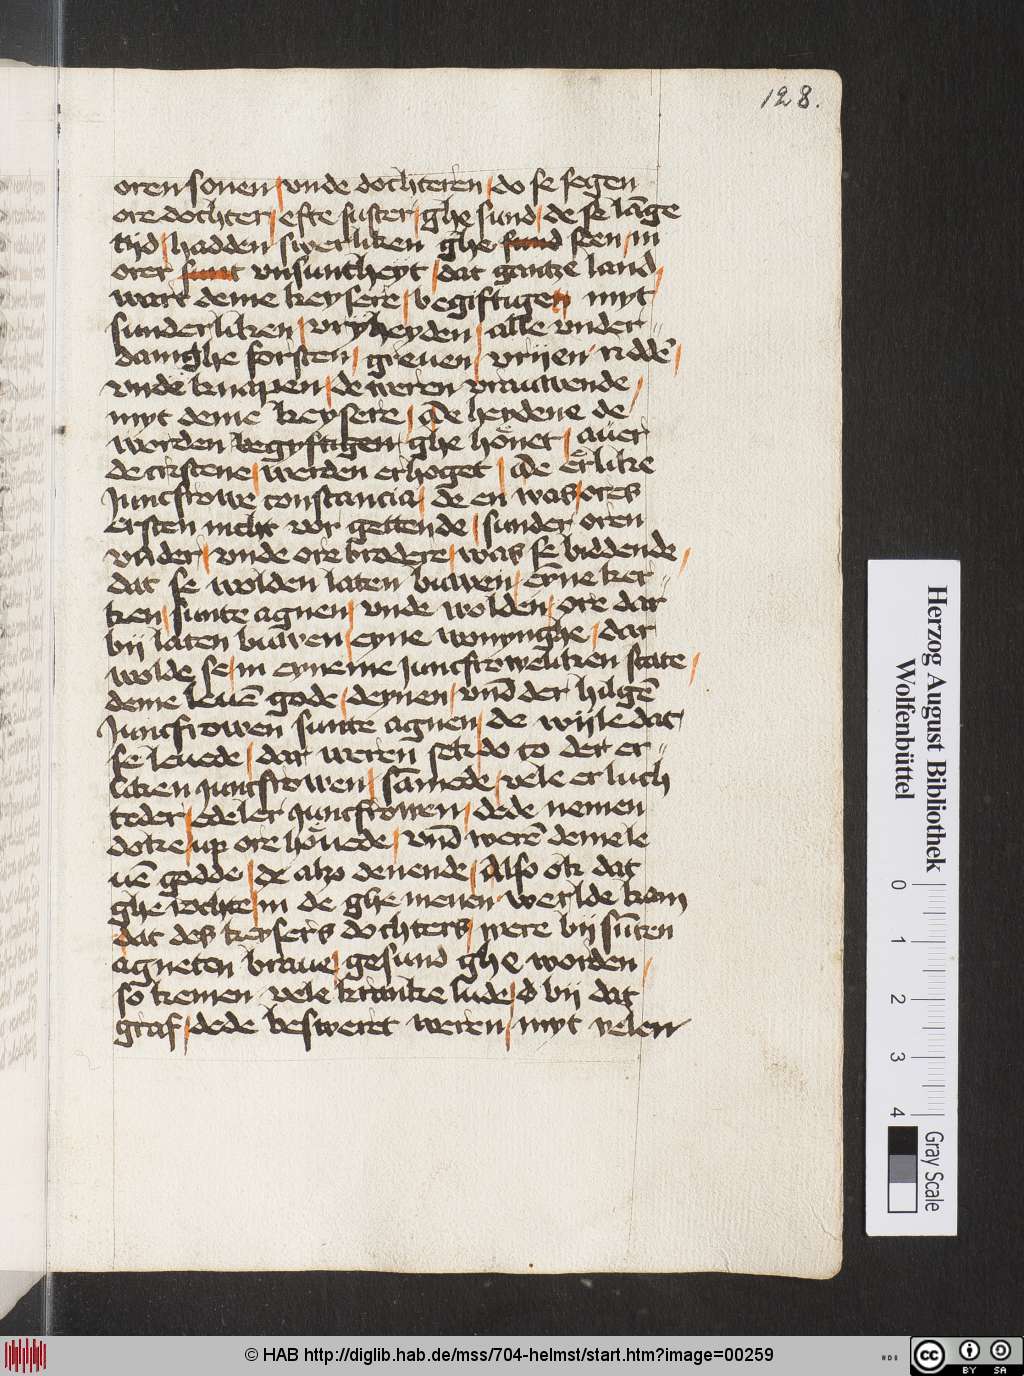 128.
oren sonen / vnde dochteren / do se segen
ore dochter / efte suster / ghe sund / de se lāge
tijd / hadden swerliken ghe sund seen / in
orer sunt vnsuntheyt / dat gantze land /
wart deme keysere / begiftigen myt /
sunderliken / vryheyden / alle vnder
danighe forsten / greuen / vrijen riddē /
vnde knapen / de weren vrauwende /
myt deme keysere / de heydene de /
worden begyftigen ghe hönet / auer
de cristene / werden erhoget / de erlike
Juncfrowe constancia / de en was / ores
ersten nicht vor gettende / sunder oren
vader / vnde ore brodere / was se biddende /
dat se wolden laten buwen / eyne ker
ken / sunte agnen / vnde wolden / ore dar
bij laten buwen / eyne wonynghe / dar
wolde se / in eyneme Juncfroweliken state /
deme leuē gode / deynen / vnd der hilgē
Juncfrowen sunte agnen / de wijle dat /
se leuede / dar weren sek do to der er
liken Juncfrowen / sāmede / vele erluch
teder / edeler Juncfrowen / dede nemen
doke / up ore höuede / vnd werē deme le
uē godde / de also denende / Also ok dat
ghe rochte / in de ghe menen werlde kam
dat des keysers dochters / were bij sūten
agneten braue / gesund ghe worden /
so kemen vele kranke lude / bij dat
graf / dede besweret weren / myt velen
Herzog August Bibliothek
Wolfenbüttel
0 1 2 3 4
Gray Scale
© HAB http://diglib.hab.de/mss/704-helmst/start.htm?image=00259
cc BY SA